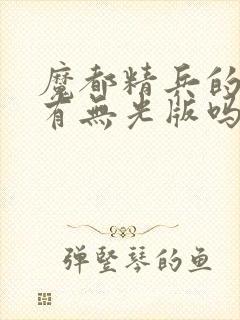 魔都精兵的
有無光版吗
弹竖琴的鱼